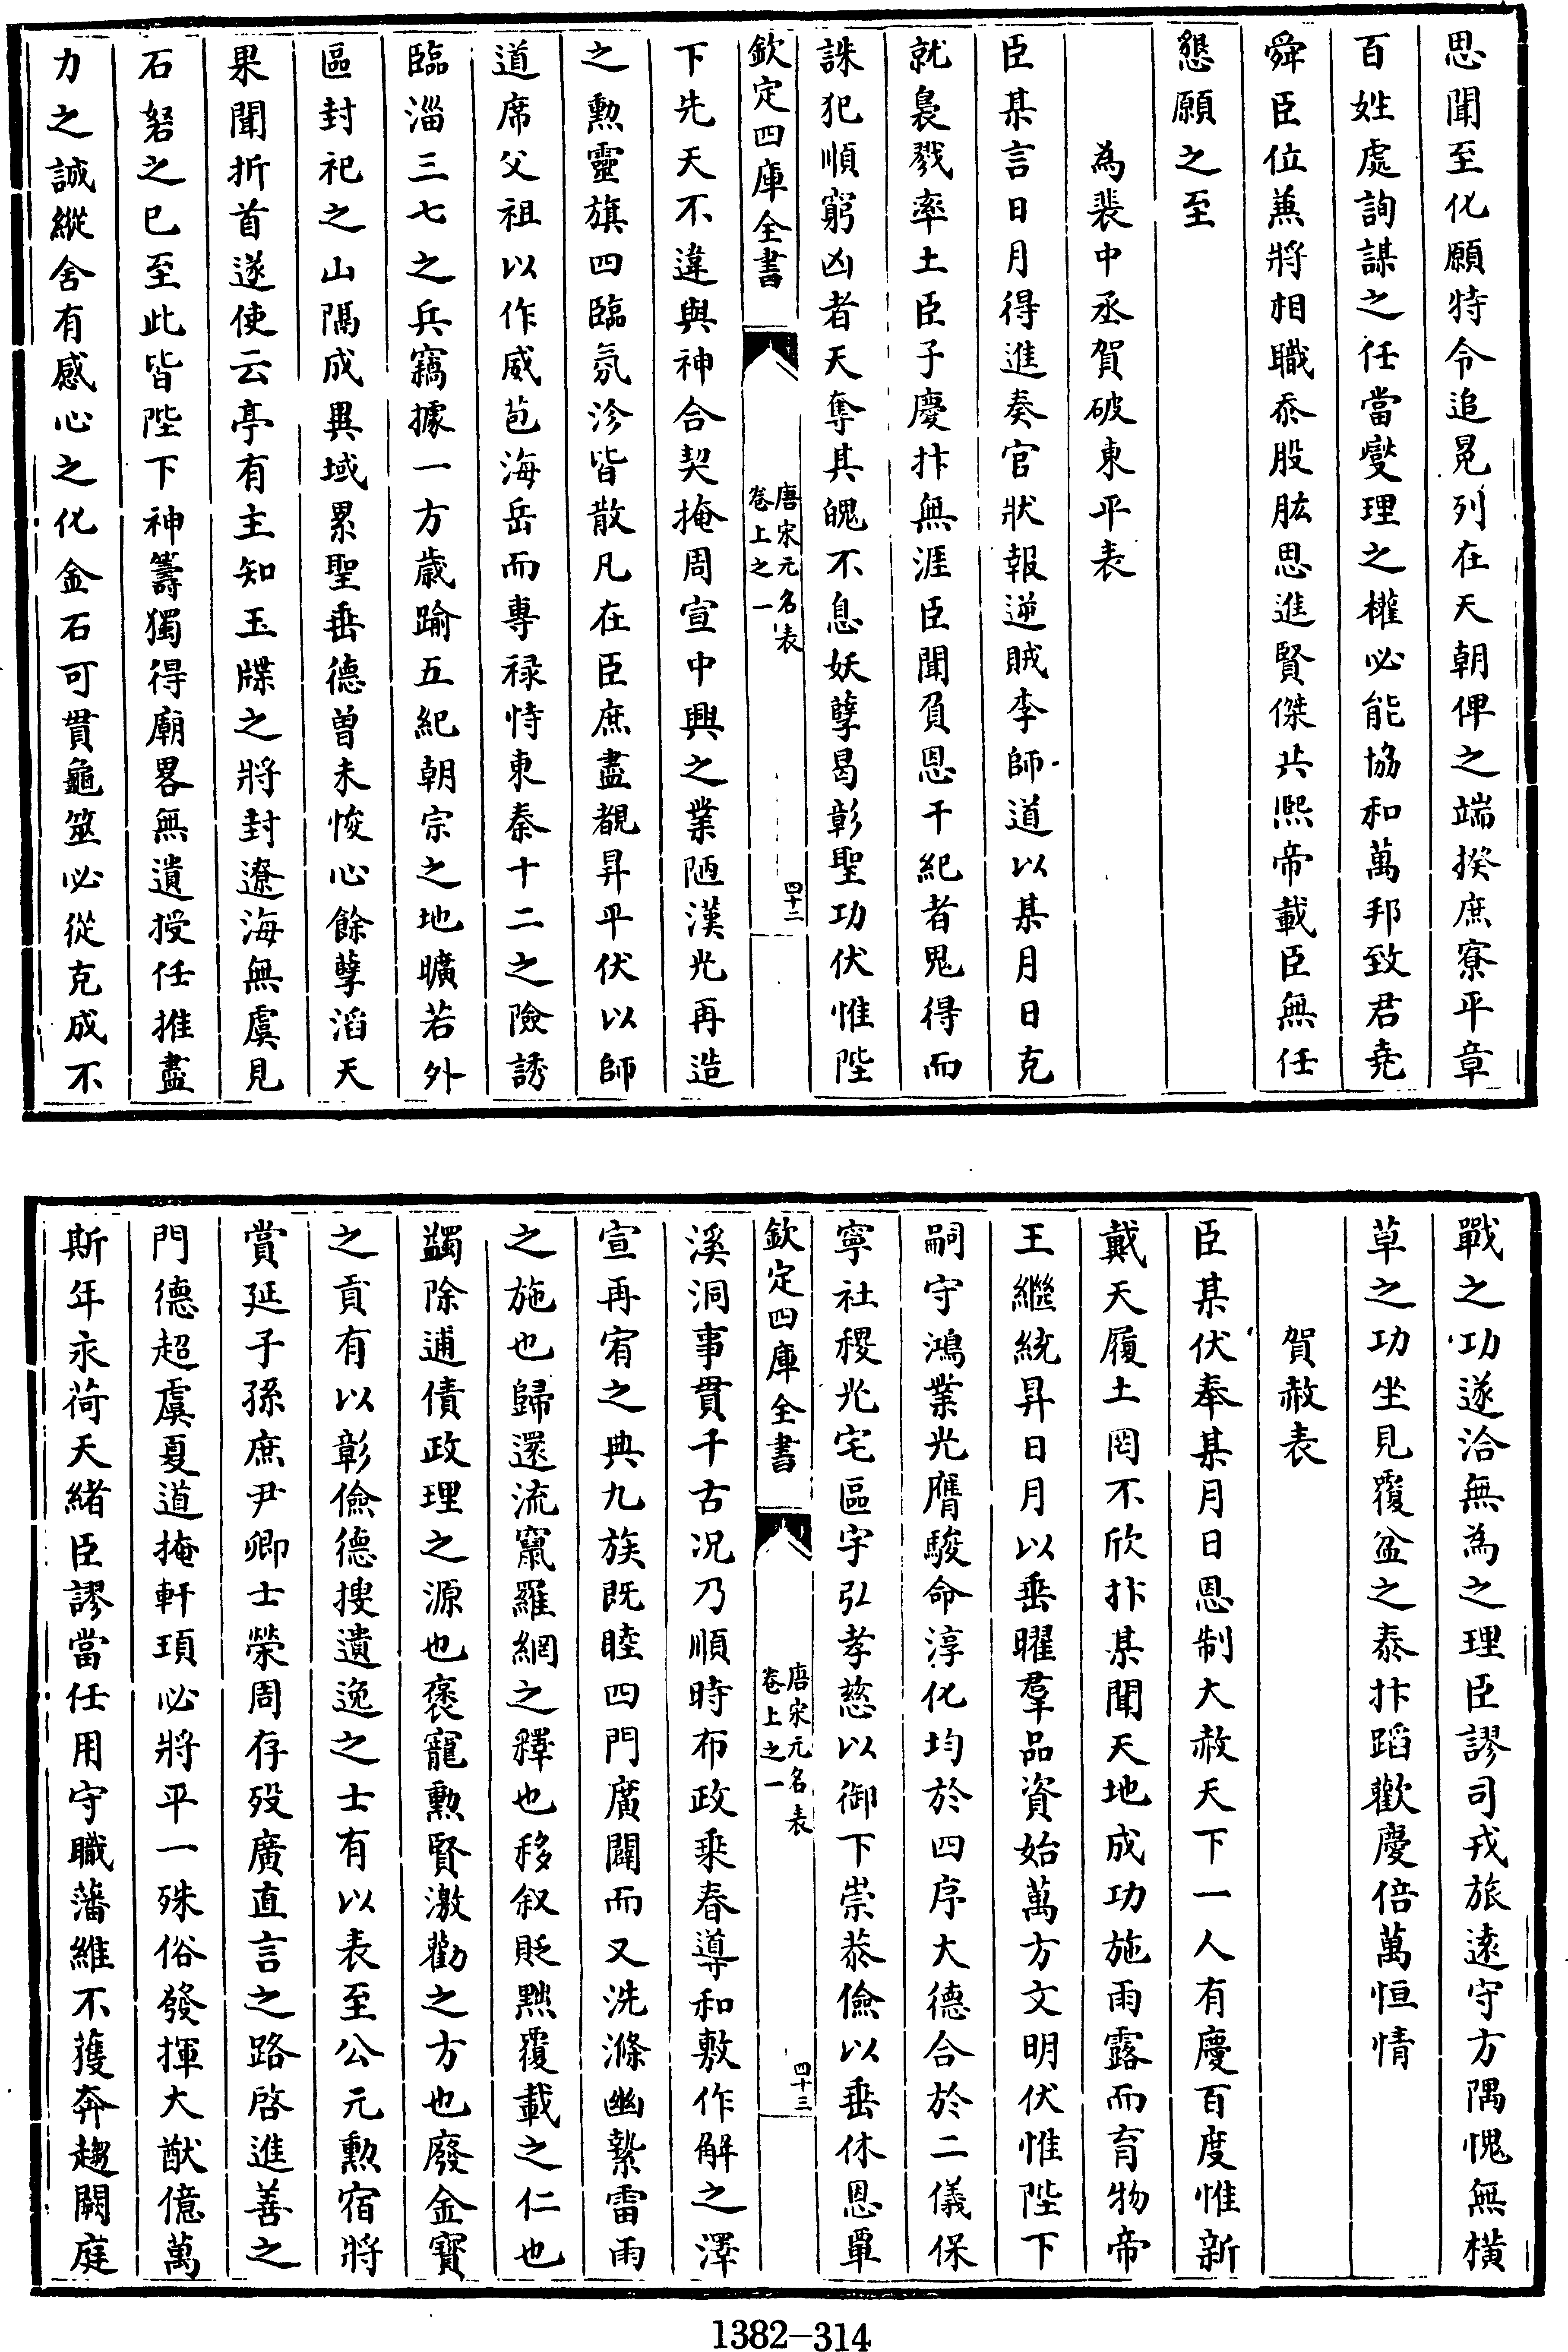 思聞至化願特令追冕列在天朝俾之端揆庶寮平章
百姓處詢謀之任當燮理之權必能協和萬邦致君堯
舜臣位兼將相職忝股肱思進賢傑共熙帝載臣無任
懇願之至
為裴中丞賀破東平表
臣某言日月得進奏官狀報逆賊李師道以某月日克
就裊戮率土臣子慶抃無涯臣聞負恩千紀者鬼得而
誅犯順窮凶者天奪其魄不息妖孽曷彰聖功伏惟陛
欽定四庫全書
唐宋元名表
卷上之一
四十二
下先天不違與神合契掩周宣中興之業陋漢光再造
之勲靈旗四臨氛沴皆散凡在臣庶盡覩昇平伏以師
道席父祖以作威苞海岳而專祿恃東秦十二之險誘
臨淄三七之兵竊據一方歲踰五紀朝宗之地曠若外
區封祀之山隅成異域累聖垂德曾未悛心餘孽滔天
果聞折首遂使云亭有主知玉牒之將封遼海無虞見
石砮之已至此皆陛下神籌獨得廟畧無遺授任推盡
力之誠縱舍有感心之化金石可貫龜筮必從克成不
戰之功遂洽無為之理臣謬司戎旅逺守方隅愧無橫
草之功坐見覆盆之泰抃蹈歡慶倍萬恒情
賀赦表
臣某伏奉某月日恩制大赦天下一人有慶百度惟新
戴天履土罔不欣抃某聞天地成功施雨露而育物帝
王繼統昇日月以垂曜羣品資始萬方文明伏惟陛下
嗣守鴻業光膺駿命淳化均於四序大德合於二儀保
寧社稷光宅區宇弘孝慈以御下崇恭儉以垂休恩覃
欽定四庫全書
唐宋元名表
卷上之一
四十三
溪洞事貫千古况乃順時布政乘春導和敷作解之澤
宣再宥之典九族既睦四門廣闢而又洗滌幽縶雷雨
之施也歸還流竄羅網之釋也移叙貶黜覆載之仁也
蠲除逋債政理之源也褒寵勲賢激勸之方也廢金寶
之貢有以彰儉德搜遺逸之士有以表至公元勲宿將
賞延子孫庶尹卿士榮周存殁廣直言之路啓進善之
門德超虞夏道掩軒頊必將平一殊俗發揮大猷億萬
斯年永荷天緒臣謬當任用守職藩維不獲奔趨闕庭
1382-314